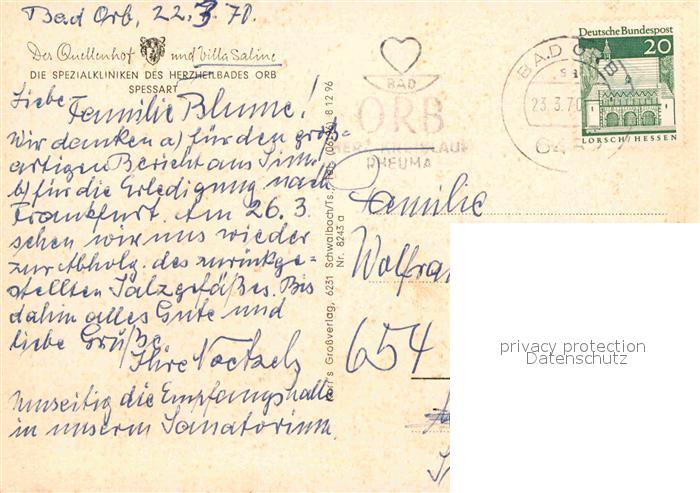 Bad Orb, 22.3.70
Der Quellenhof und Villa Saline
DIE SPEZIALKLINIKEN DES HERZHEILBADES ORB
SPESSART
Liebe Familie Blume!
Wir danken a) für den groß-
artigen Bericht aus
b) für die Erledigung nach
Frankfurt. Am 26.3.
sehen wir uns wieder
zur Abholg. des zurückge-
stellten Salzgefäßes. Bis
dahin alles Gute und
liebe Grüße,
Ihre Noetzels
Umseitig die Empfangshalle
in unserem Sanatorium.
Großverlag, 6231 Schwalbach/Ts., 8 12 96
Nr. 8243 a
BAD
ORB
HERZ KREISLAUF
RHEUMA
BAD ORB
23.3.70
Deutsche Bundespost
20
LORSCH/HESSEN
Familie
Wolfra
654
privacy protection
Datenschutz